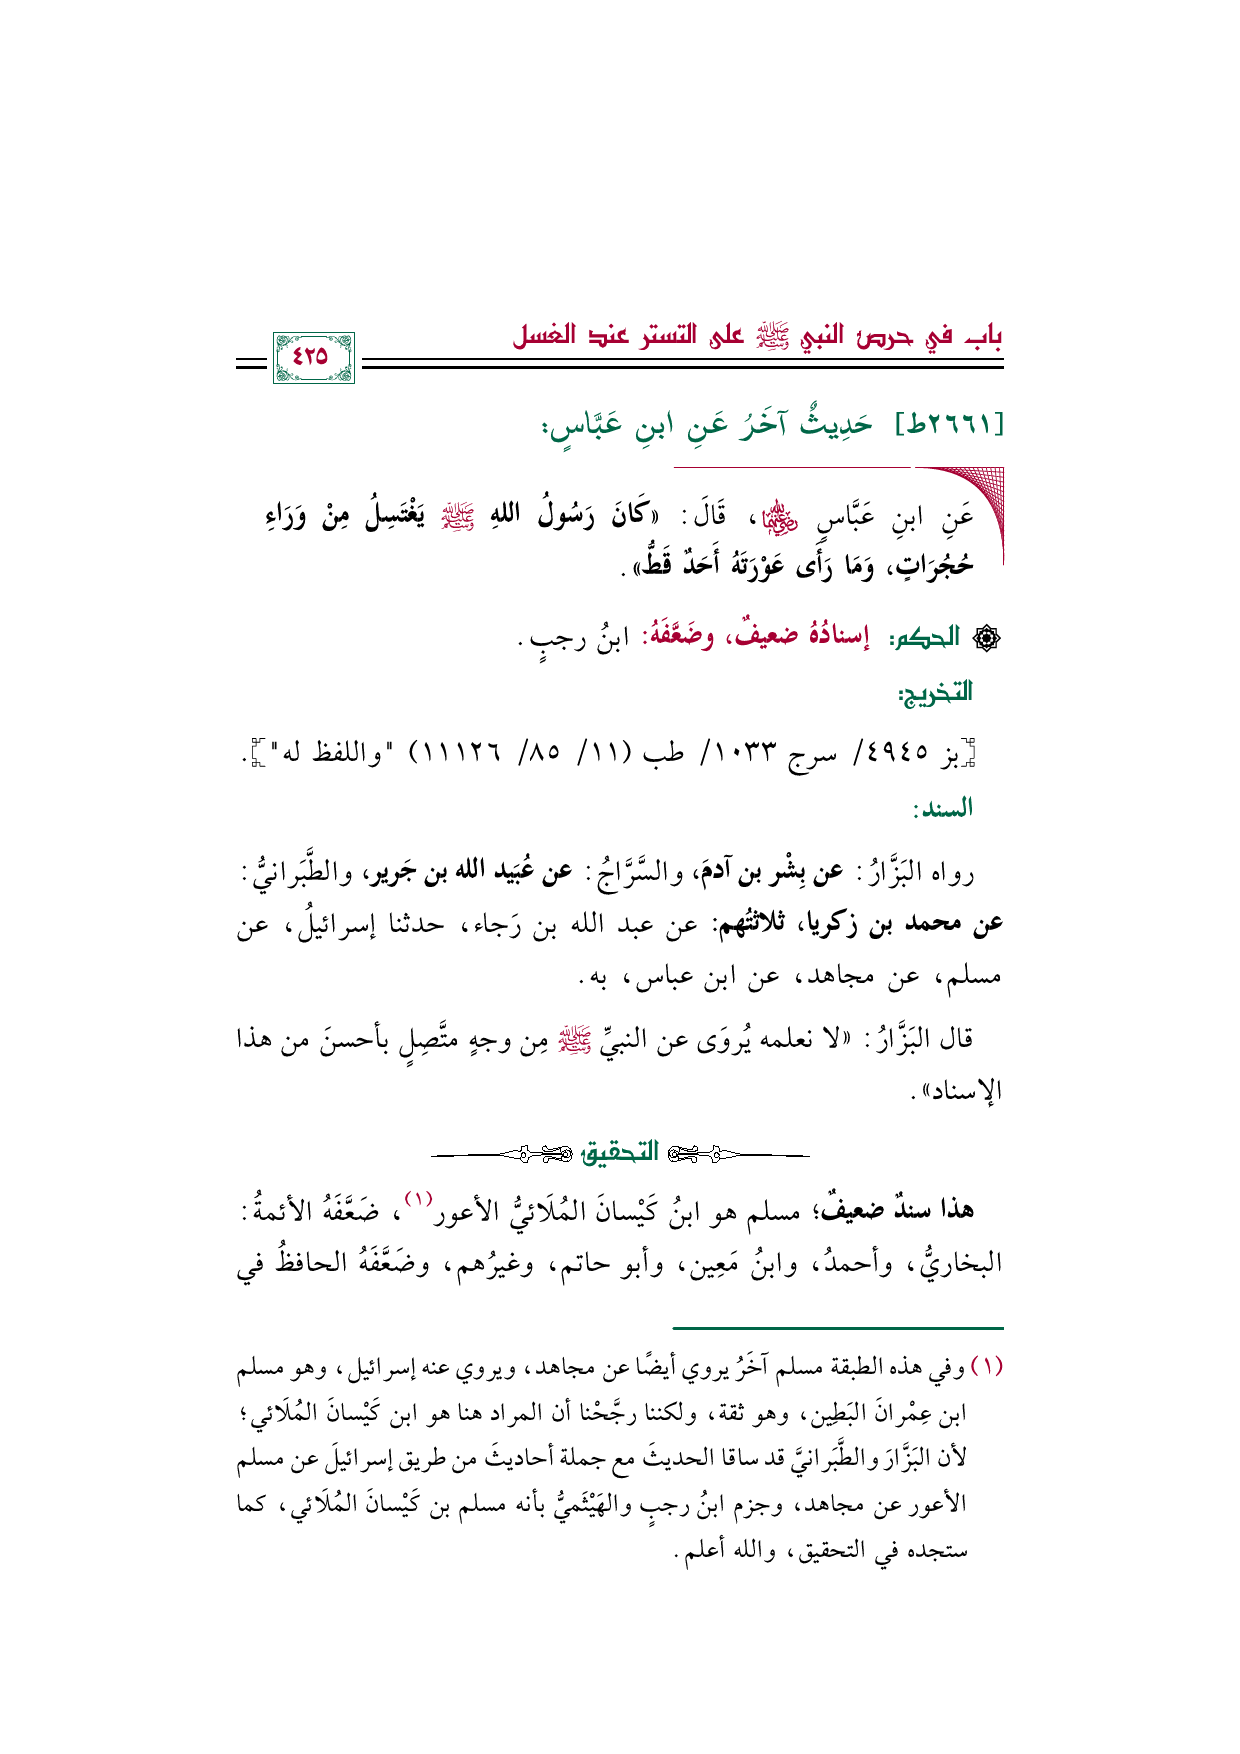 باب في حرص النبي ﷺ على التستر عند الغسل
٤٢٥
[٢٦٦١ط] حَدِيثٌ آخَرُ عَنِ ابنِ عَبَّاسٍ:
عَنِ ابنِ عَبَّاسٍ رضي الله عنهما، قَالَ: «كَانَ رَسُولُ اللهِ ﷺ يَغْتَسِلُ مِنْ وَرَاءِ
حُجُرَاتٍ، وَمَا رَأَى عَوْرَتَهُ أَحَدٌ قَطُّ».
الحكم: إسنادُهُ ضعيفٌ، وضَعَّفَهُ: ابنُ رجبٍ.
التخريج:
[بز ٤٩٤٥/ سرج ١٠٣٣/ طب (١١/ ٨٥/ ١١١٢٦) "واللفظ له"].
السند:
رواه البَزَّارُ: عن بِشْر بن آدمَ، والسَّرَّاجُ: عن عُبَيد الله بن جَرير، والطَّبَرانيُّ:
عن محمد بن زكريا، ثلاثتُهم: عن عبد الله بن رَجاء، حدثنا إسرائيلُ، عن
مسلم، عن مجاهد، عن ابن عباس، به.
قال البَزَّارُ: «لا نعلمه يُروَى عن النبيِّ ﷺ مِن وجهٍ متَّصِلٍ بأحسنَ من هذا
الإسناد».
التحقيق
هذا سندٌ ضعيفٌ؛ مسلم هو ابنُ كَيْسانَ المُلَائيُّ الأعور(١)، ضَعَّفَهُ الأئمةُ:
البخاريُّ، وأحمدُ، وابنُ مَعِين، وأبو حاتم، وغيرُهم، وضَعَّفَهُ الحافظُ في
(١) وفي هذه الطبقة مسلم آخَرُ يروي أيضًا عن مجاهد، ويروي عنه إسرائيل، وهو مسلم
ابن عِمْرانَ البَطِين، وهو ثقة، ولكننا رجَّحْنا أن المراد هنا هو ابن كَيْسانَ المُلَائي؛
لأن البَزَّارَ والطَّبَرانيَّ قد ساقا الحديثَ مع جملة أحاديثَ من طريق إسرائيلَ عن مسلم
الأعور عن مجاهد، وجزم ابنُ رجبٍ والهَيْثَميُّ بأنه مسلم بن كَيْسانَ المُلَائي، كما
ستجده في التحقيق، والله أعلم.